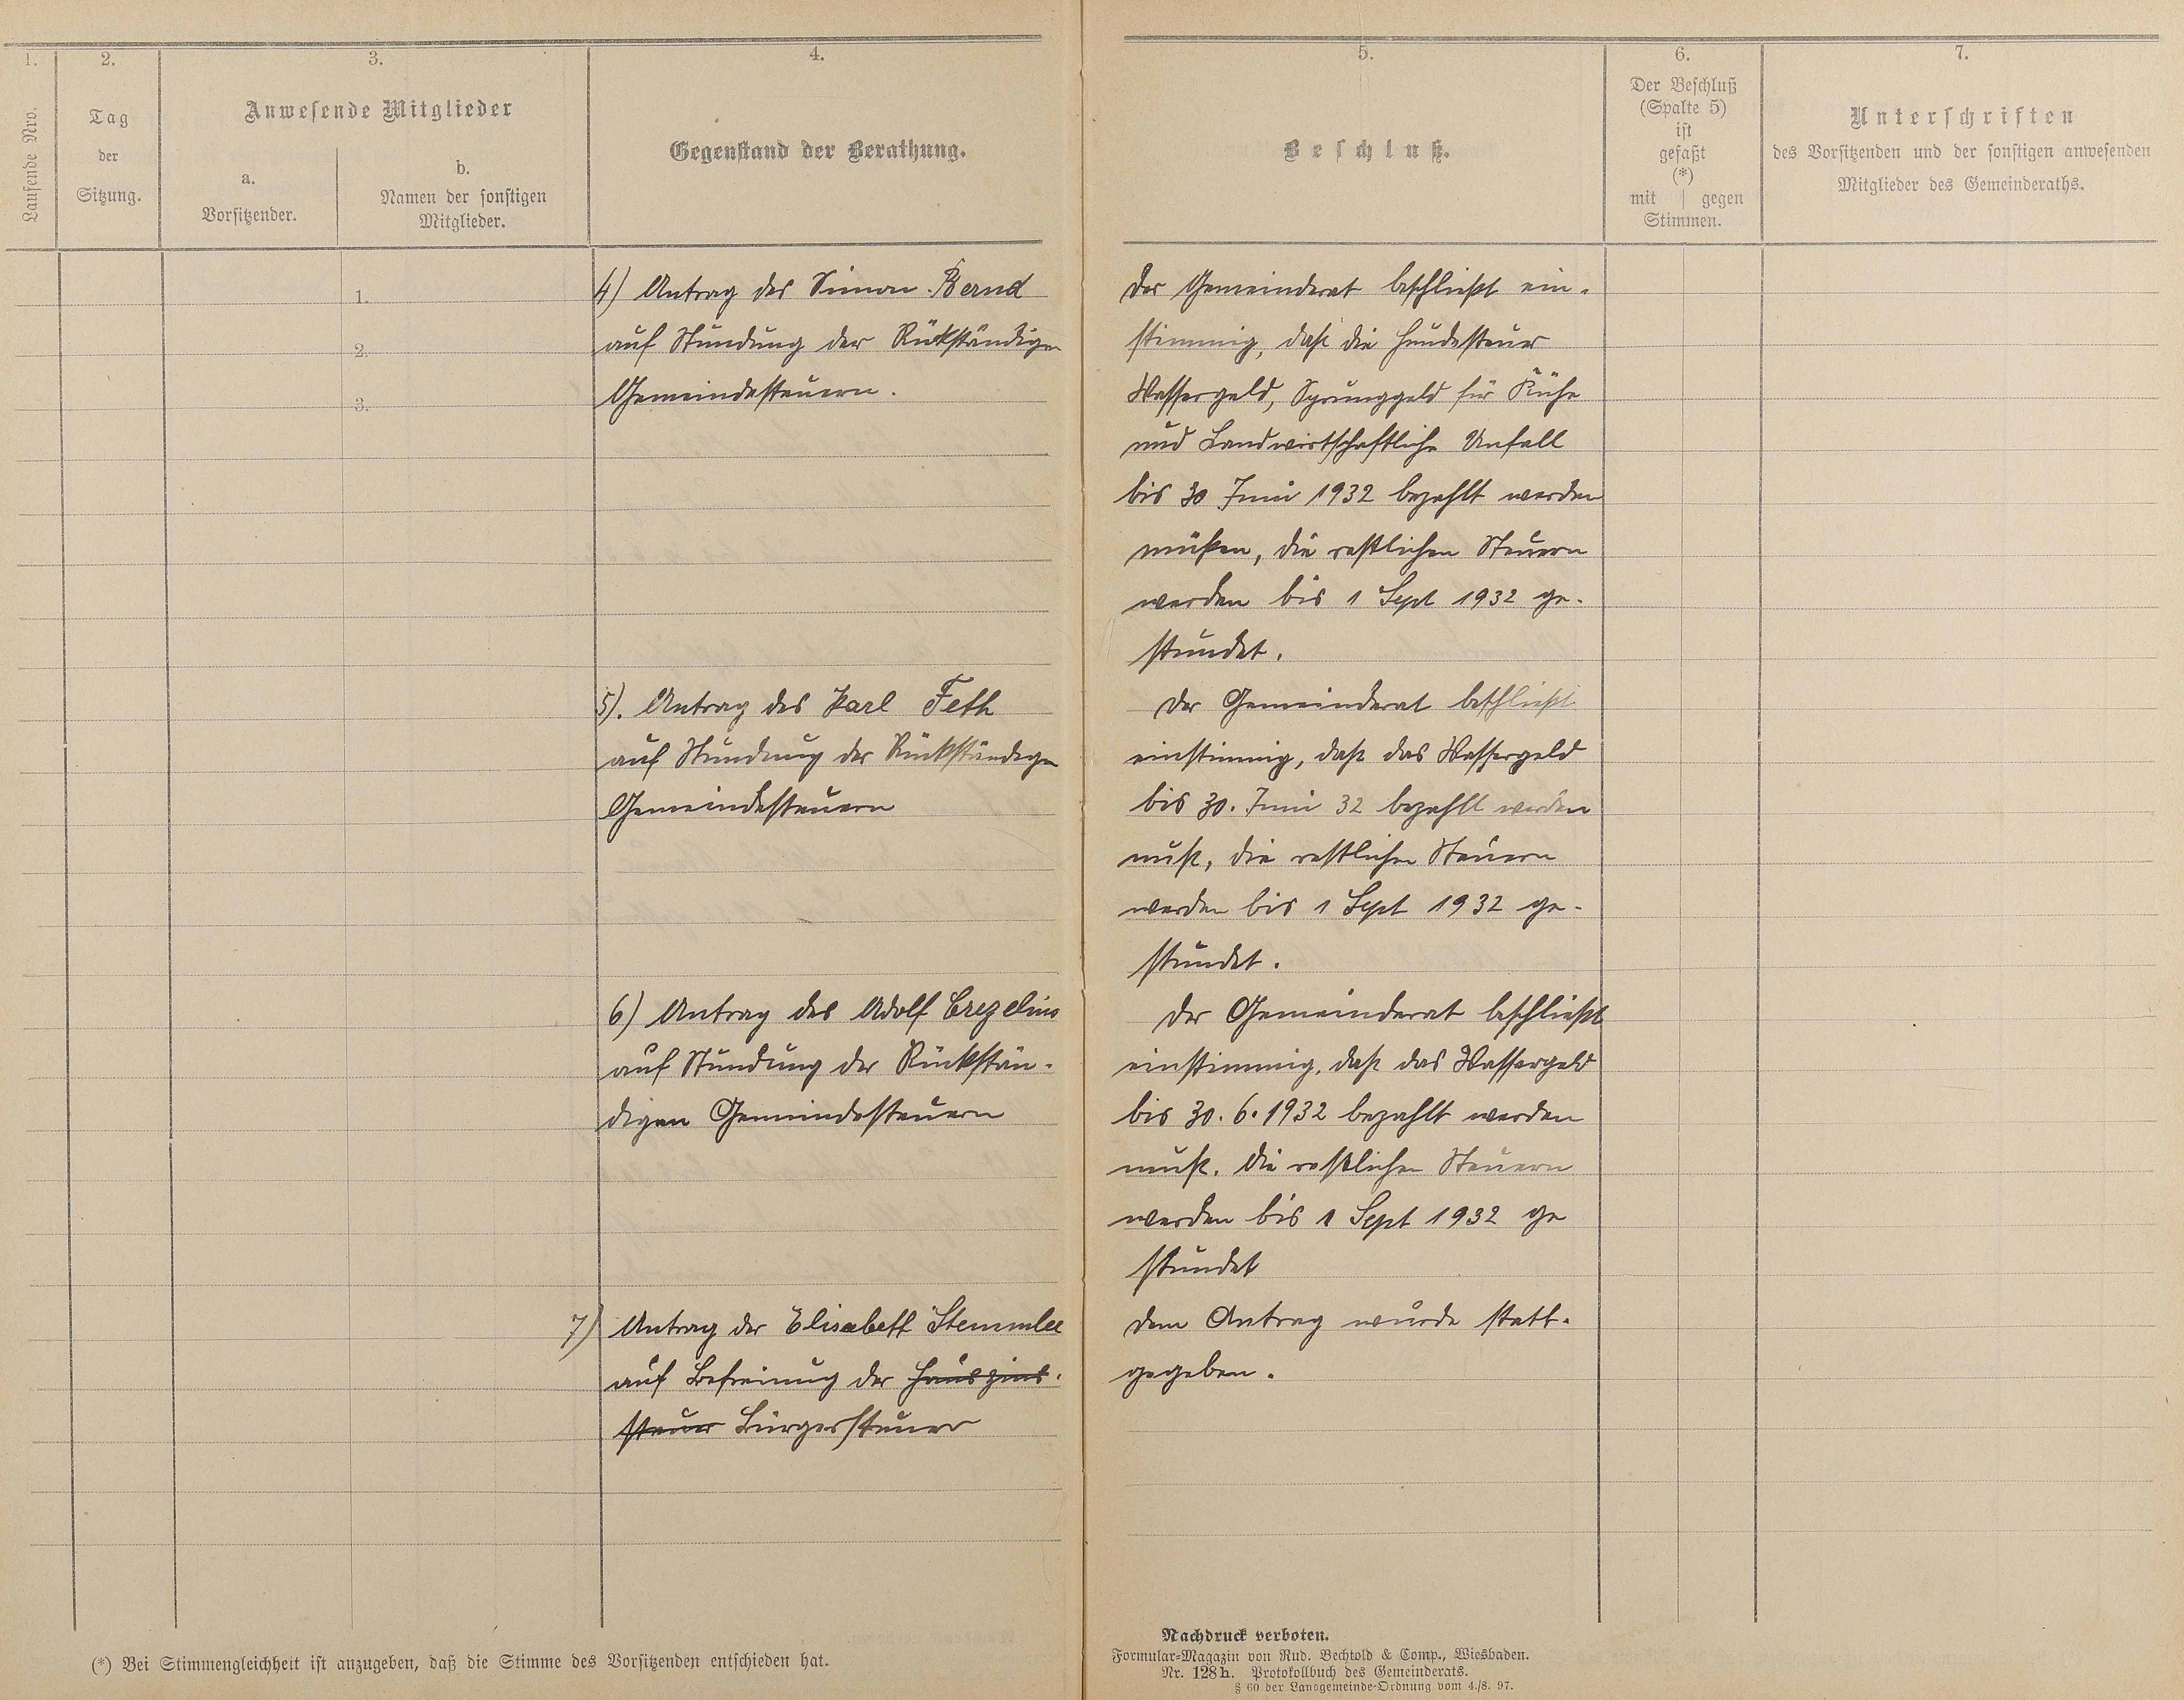 1.
Laufende Nro.
2.
Tag
der
Sitzung.
3.
Anwesende Mitglieder
a.
Vorsitzender.
b.
Namen der sonstigen
Mitglieder.
4.
Gegenstand der Berathung.
1.
2.
3.
4) Antrag des Simon Bernd
auf Stundung der Rückständigen
Gemeindesteuern.
5). Antrag des Karl Feth
auf Stundung der Rückständigen
Gemeindesteuern
6) Antrag des Adolf Crezelius
auf Stundung der Rückstän-
digen Gemeindesteuern
7) Antrag der Elisabeth Stemmler
auf Befreiung der Hauszins-
steuer Bürgersteuer
(*) Bei Stimmengleichheit ist anzugeben, daß die Stimme des Vorsitzenden entschieden hat.
5.
Beschluß.
6.
Der Beschluß
(Spalte 5)
ist
gefaßt
(*)
mit | gegen
Stimmen.
7.
Unterschriften
des Vorsitzenden und der sonstigen anwesenden
Mitglieder des Gemeinderaths.
Der Gemeinderat beschließt ein-
stimmig, daß die Hundesteuer
Wassergeld, Sprunggeld für Kühe
und Landwirtschaftliche Unfall
bis 30 Juni 1932 bezahlt werden
müßen, die restlichen Steuern
werden bis 1 Sept 1932 ge-
stundet.
Der Gemeinderat beschließt
einstimmig, daß das Wassergeld
bis 30. Juni 32 bezahlt werden
muß, die restlichen Steuern
werden bis 1 Sept 1932 ge-
stundet.
Der Gemeinderat beschließt
einstimmig, daß das Wassergeld
bis 30. 6. 1932 bezahlt werden
muß. Die restlichen Steuern
werden bis 1 Sept 1932 ge
stundet
Dem Antrag wurde statt-
gegeben.
Nachdruck verboten.
Formular-Magazin von Rud. Bechtold & Comp., Wiesbaden.
Nr. 128h. Protokollbuch des Gemeinderats.
§ 60 der Landgemeinde-Ordnung vom 4./8. 97.